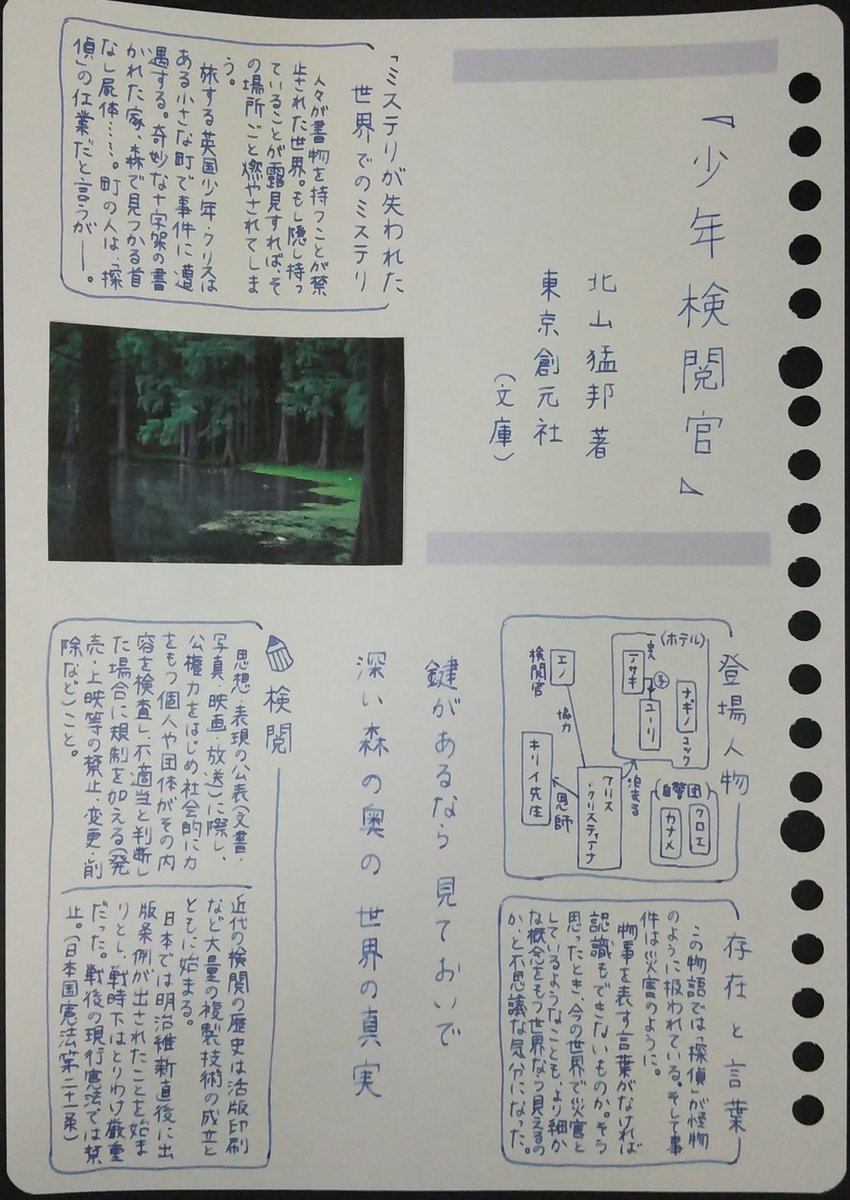 『少年検閲官』
北山猛邦 著
東京創元社
(文庫)
「ミステリが失われた
世界でのミステリ
人々が書物を持つことが禁
止された世界。もし隠し持っ
ていることが露見すれば、そ
の場所ごと燃やされてしま
う。
旅する英国少年・クリスは
ある小さな町で事件に遭
遇する。奇妙な十字架の書
かれた家、森で見つかる首
なし屍体……。町の人は、「探
偵」の仕業だと言うが――。
登場人物
(ホテル)
ナギノ
コック
夫
テサキ
子
ユーリ
エノ
検閲官
協力
泊まる
クリス
・クリスティアナ
恩師
キリイ先生
(自警団)
クロエ
カナメ
存在と言葉
この物語では「探偵」が怪物
のように扱われている。そして事
件は災害のように。
物事を表す言葉がなければ
認識もできないものか。そう
思ったとき、今の世界で災害と
しているようなことも、より細か
な概念をもつ世界なら見えるの
か、と不思議な気分になった。
鍵があるなら 見ておいで
深い森の奥の 世界の真実
検閲
思想・表現の公表(文書・
写真・映画・放送)に際し、
公権力をはじめ社会的に力
をもつ個人や団体がその内
容を検査し、不適当と判断し
た場合に規制を加える(発
売・上映等の禁止・変更・削
除など)こと。
近代の検閲の歴史は活版印刷
など大量の複製技術の成立と
ともに始まる。
日本では明治維新直後に出
版条例が出されたことを始ま
りとし、戦時下はとりわけ厳重
だった。戦後の現行憲法では禁
止。(日本国憲法第二十一条)